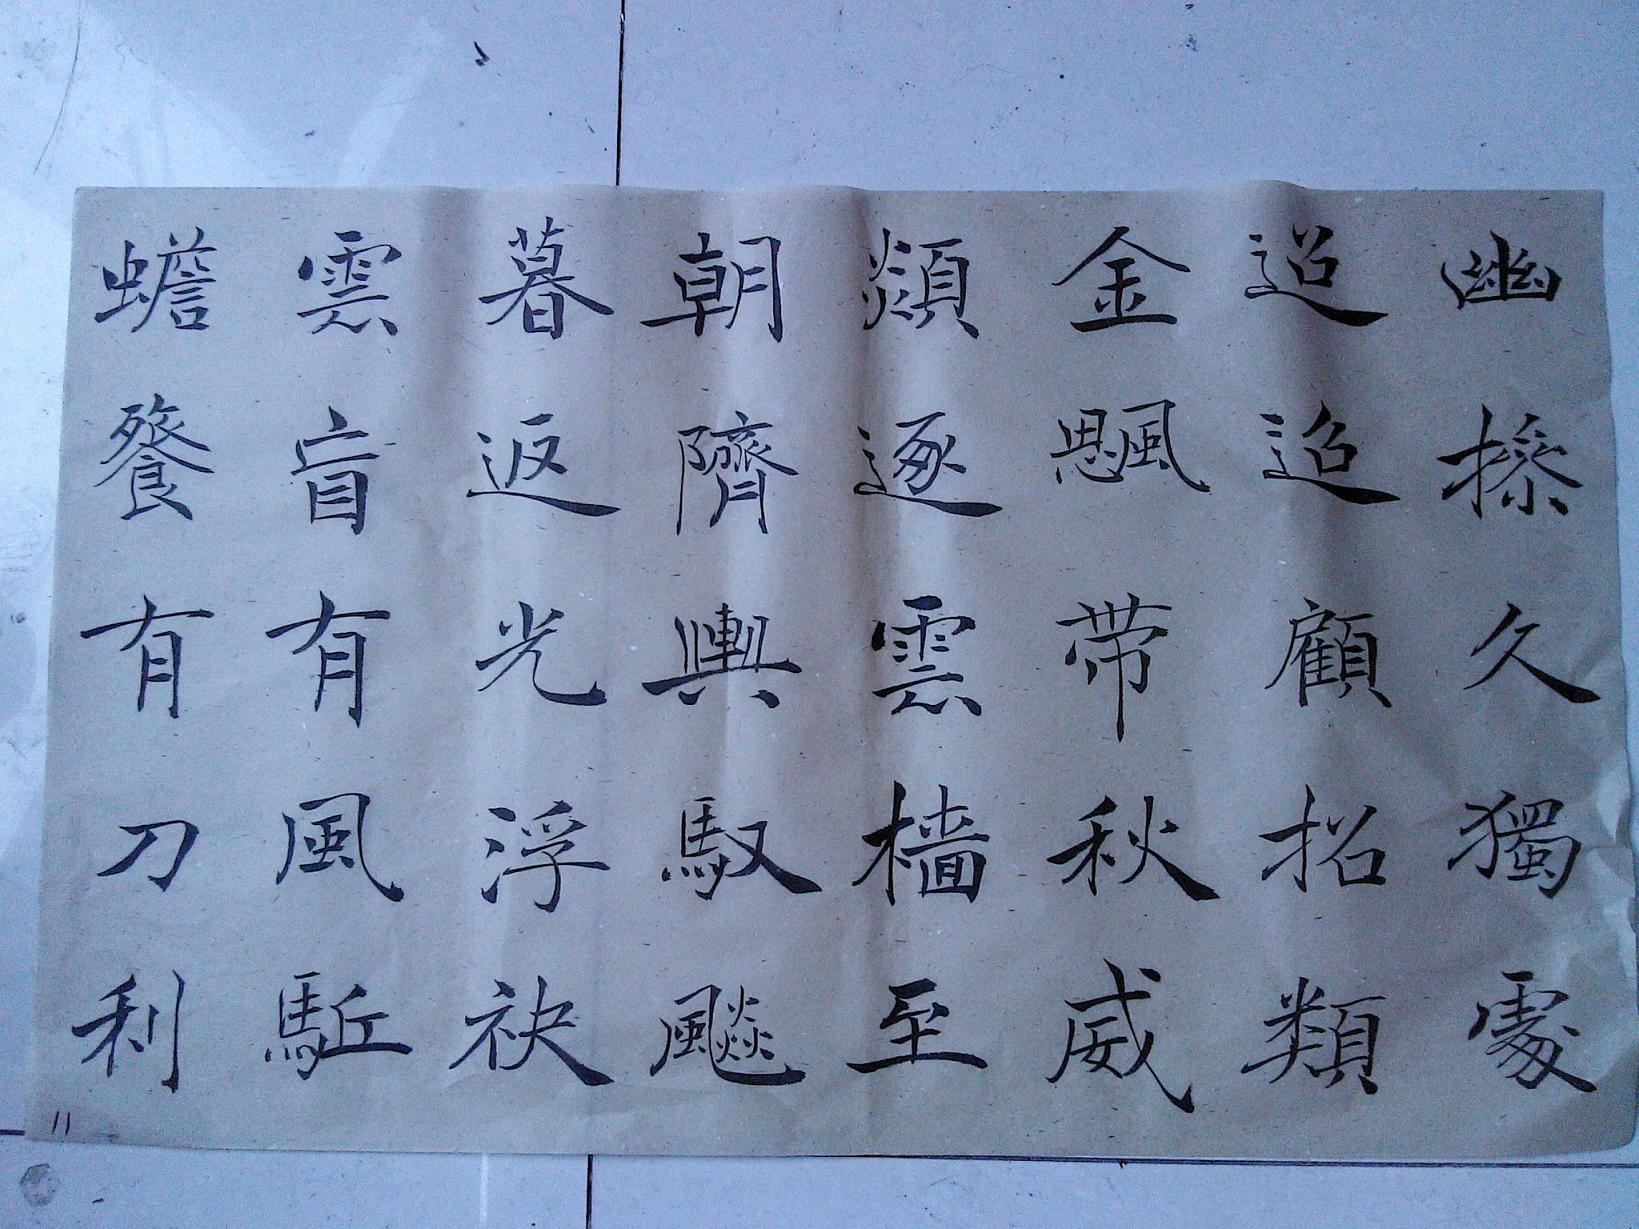 幽操久獨處
迢迢顧招類
金颸带秋威
逐雲檣至
朝隮輿馭飇
暮返光浮袂
雲盲有風駈
蟾餮有刀利
11